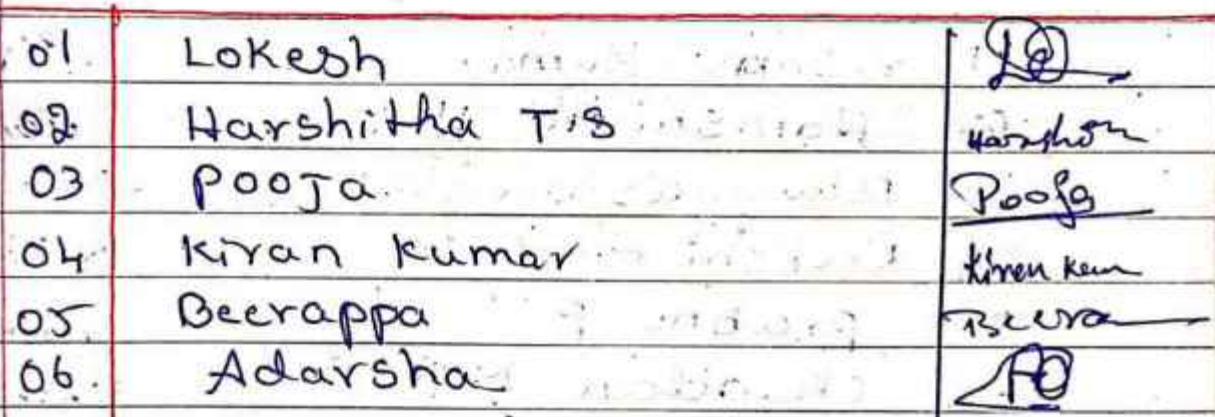 01 Lokesh
02 Harshitha T.S Harshith
03 Pooja Pooja
04 Kiran Kumar Kiren Kum
05 Beerappa Beera
06. Adarsha